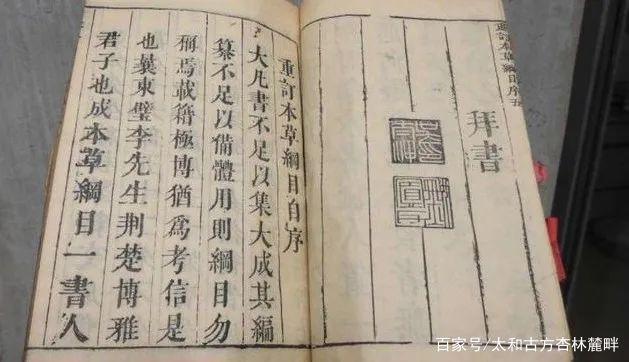 重訂本草綱目序五
拜書
重訂本草綱目自序
大凡書不足以集大成其編
纂不足以備體用則綱目勿
稱焉載籍極博猶爲考信是
也曩東璧李先生荆楚博雅
君子也成本草綱目一書人
百家号/太和古方杏林麓畔